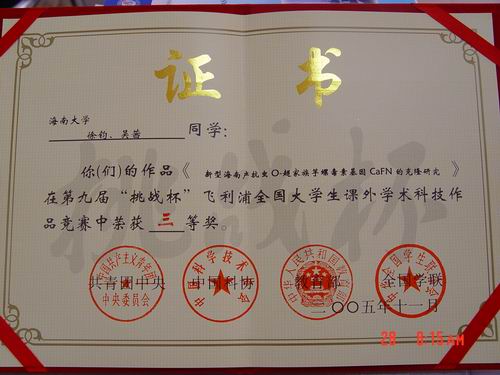 证书
海南大学
徐钧、吴茜 同学:
你(们)的作品《新型海南产抗虫O-超家族芋螺毒素基因CaFN的克隆研究》
在第九届“挑战杯”飞利浦全国大学生课外学术科技作
品竞赛中荣获 三 等奖。
挑战杯
共青团中央 中国科协 教育部 全国学联
中国共产主义青年团 中央委员会
中国科学技术协会
中华人民共和国教育部
二〇〇五年十一月
28 8:15AM